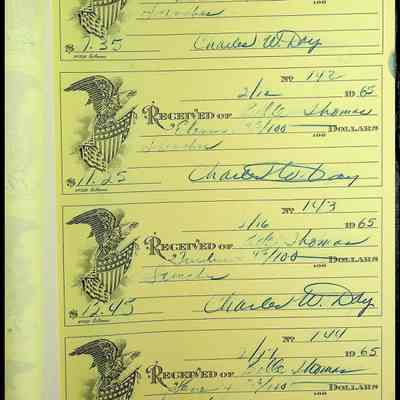 100
$ 1.35 Charles W. Day
No 142
2/12 1965
RECEIVED OF Thomas
Eleven 25/100 100 DOLLARS
Lunches
$ 11.25 Charles W. Day
No 143
2/16 1965
RECEIVED OF Thomas
Twelve 45/100 100 DOLLARS
Lunches
$ 12.45 Charles W. Day
No 144
1965
RECEIVED OF Thomas
100 DOLLARS